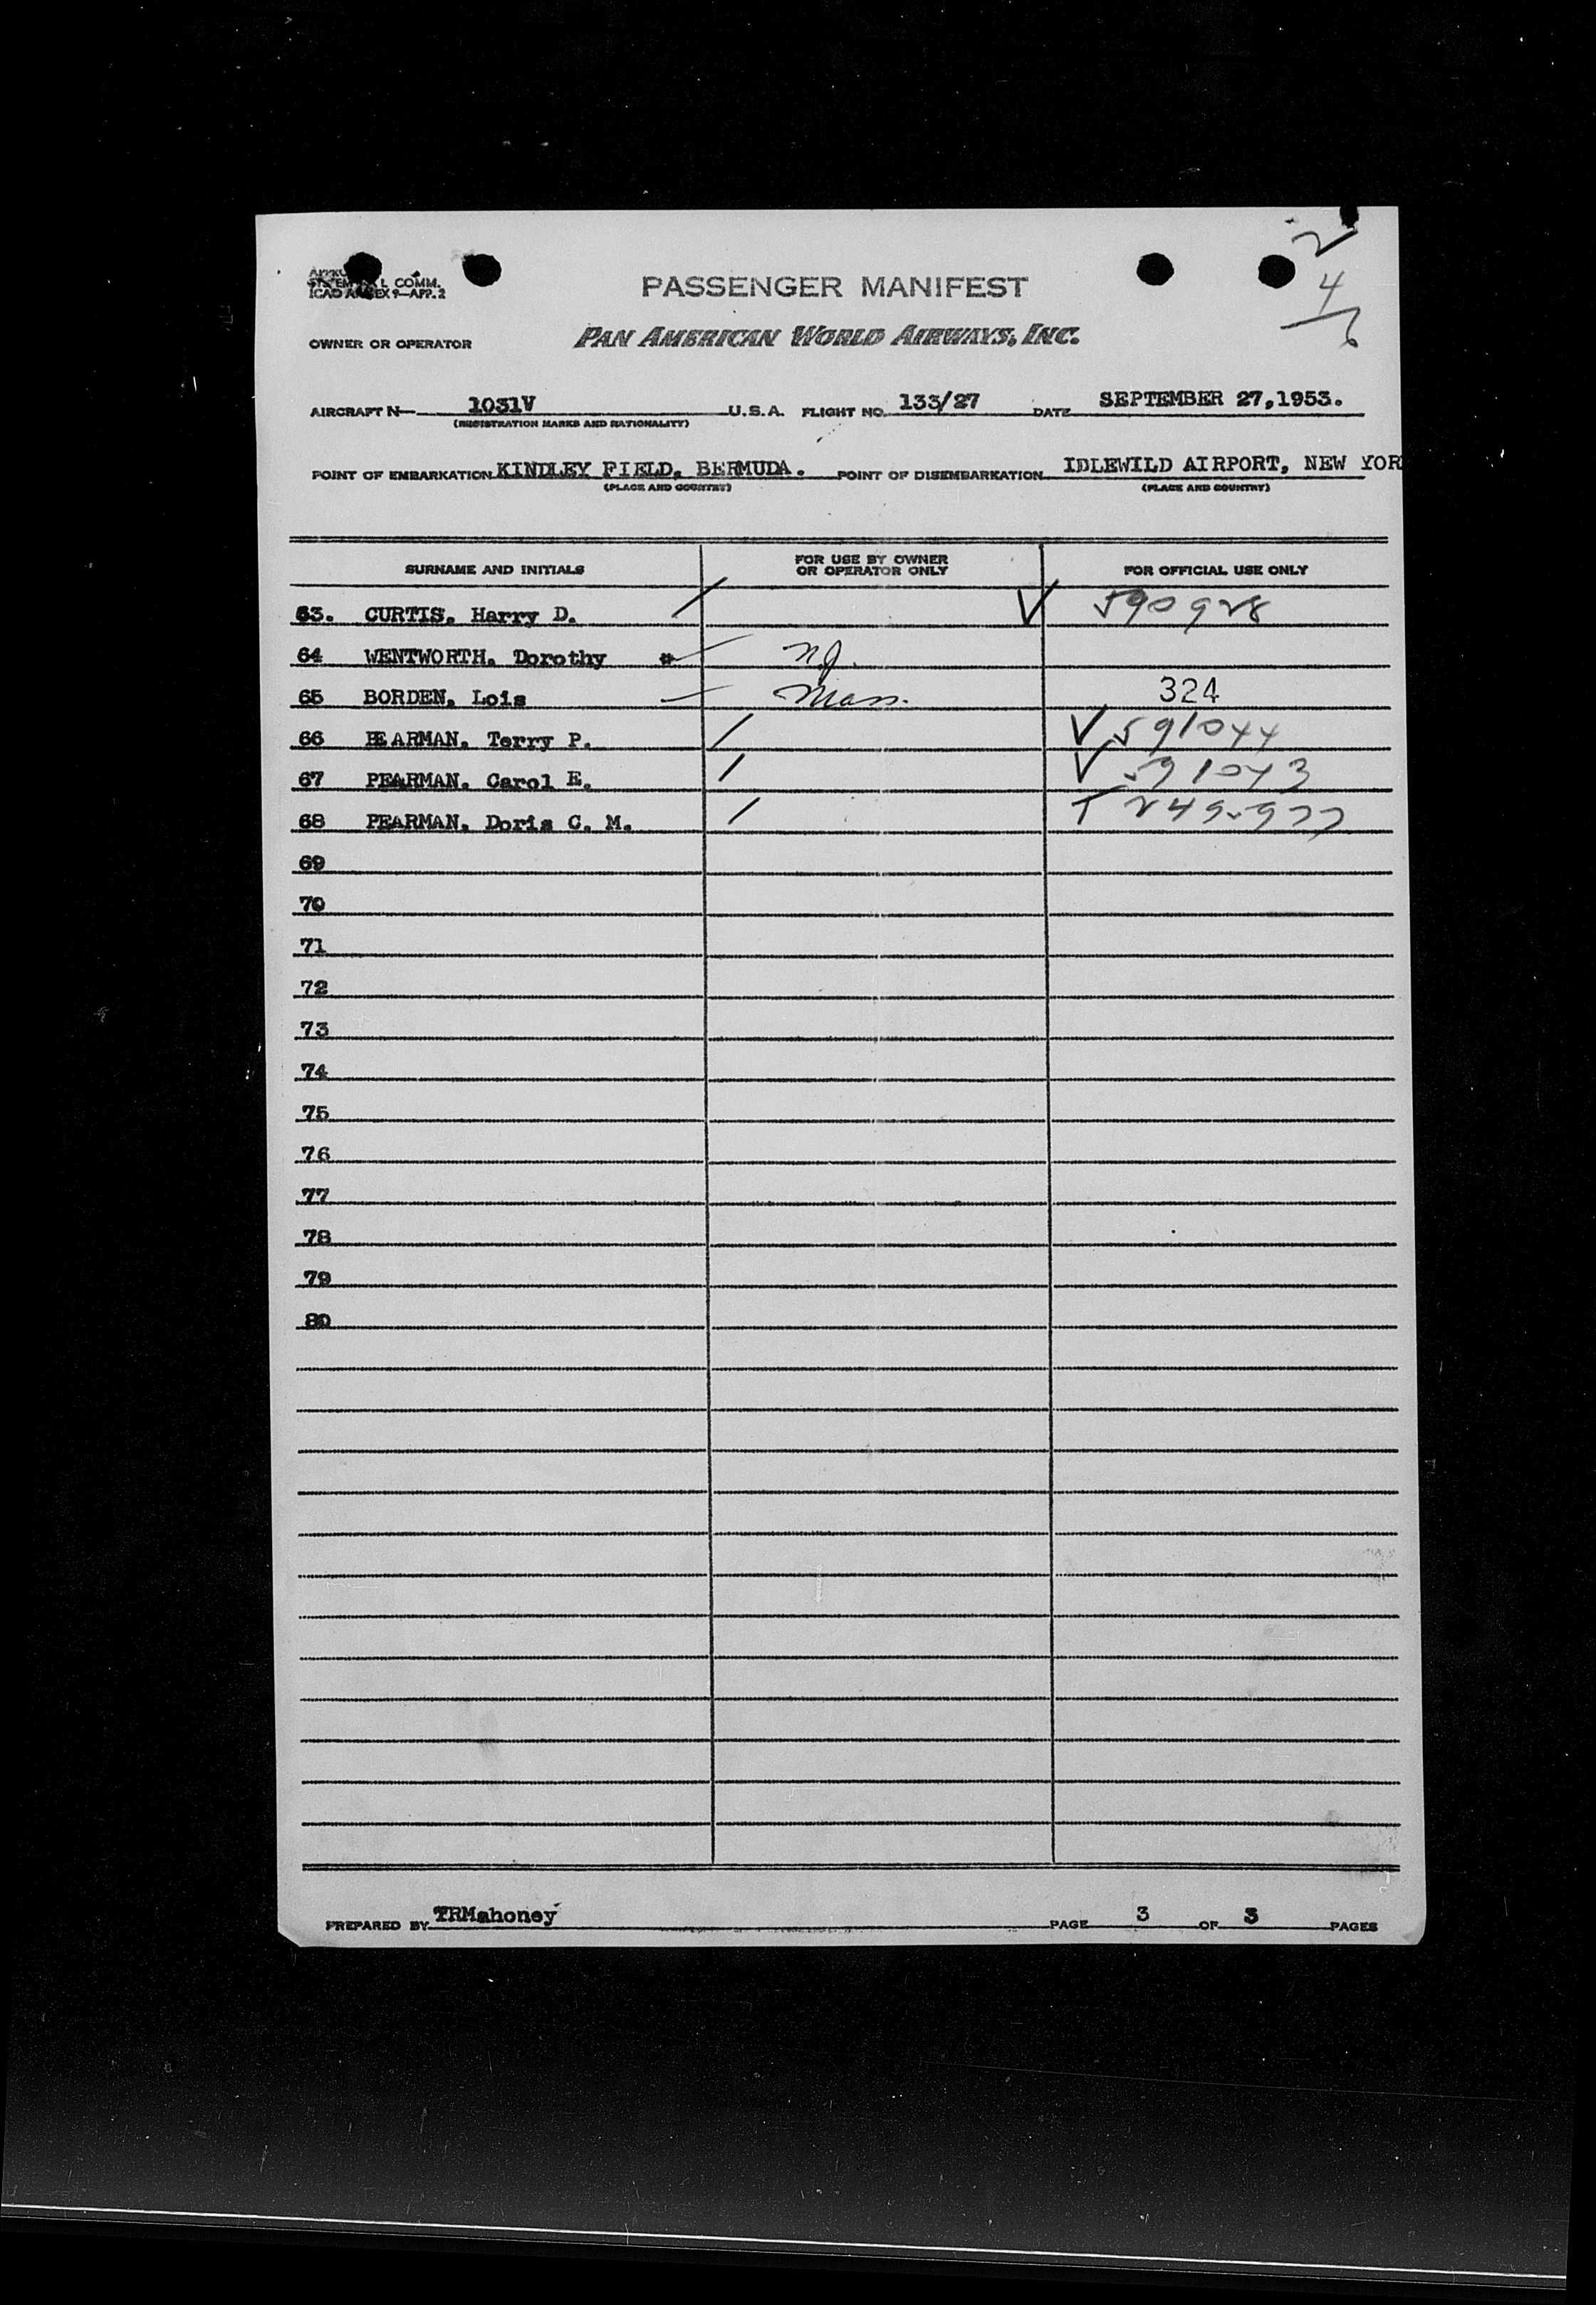 2
4
6
L COMM.
ICAO ANNEX 9-APP. 2
PASSENGER MANIFEST
OWNER OR OPERATOR
PAN AMERICAN WORLD AIRWAYS, INC.
AIRCRAFT N- 1031V U.S.A. FLIGHT NO. 133/27 DATE SEPTEMBER 27,1953.
(REGISTRATION MARKS AND NATIONALITY)
POINT OF EMBARKATION KINDLEY FIELD, BERMUDA. POINT OF DISEMBARKATION IDLEWILD AIRPORT, NEW YOR
(PLACE AND COUNTRY) (PLACE AND COUNTRY)
SURNAME AND INITIALS FOR USE BY OWNER OR OPERATOR ONLY FOR OFFICIAL USE ONLY
63. CURTIS, Harry D. / ✓ 590928
64 WENTWORTH, Dorothy N.J.
65 BORDEN, Lois Mass. 324
66 PEARMAN, Terry P. / ✓ 591044
67 PEARMAN, Carol E. / ✓ 591043
68 PEARMAN, Doris C. M. / T
69
70
71
72
73
74
75
76
77
78
79
80
PREPARED BY TRMahoney PAGE 3 OF 3 PAGES